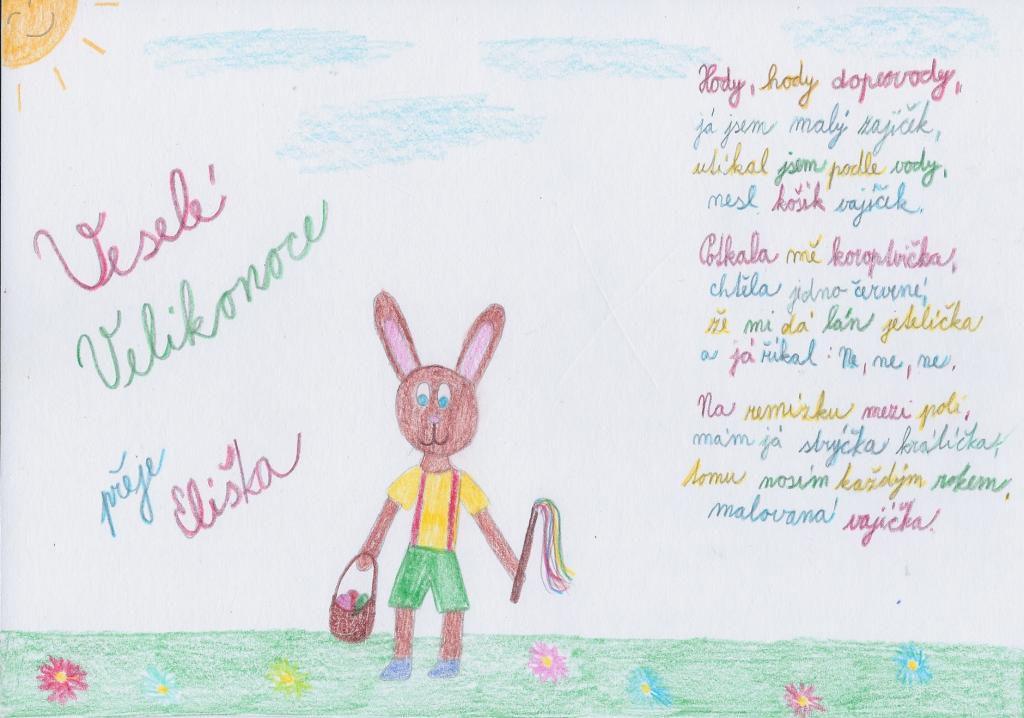 Veselé
Velikonoce
přeje
Eliška
Hody, hody doprovody,
já jsem malý zajíček,
utíkal jsem podle vody,
nesl košík vajíček.
Potkala mě koroptvička,
chtěla jedno červené,
že mi dá lán jetelíčka
a já říkal: Ne, ne, ne.
Na remízku mezi poli,
mám já strýčka králíčka,
tomu nosím každým rokem,
malovaná vajíčka!